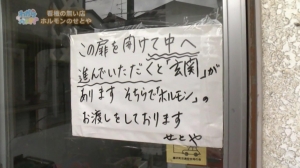 看板の無い店
ホルモンのせとや
この扉を開けて中へ
進んでいただくと「玄関」が
あります そちらで「ホルモン」の
お渡しをしております
せとや